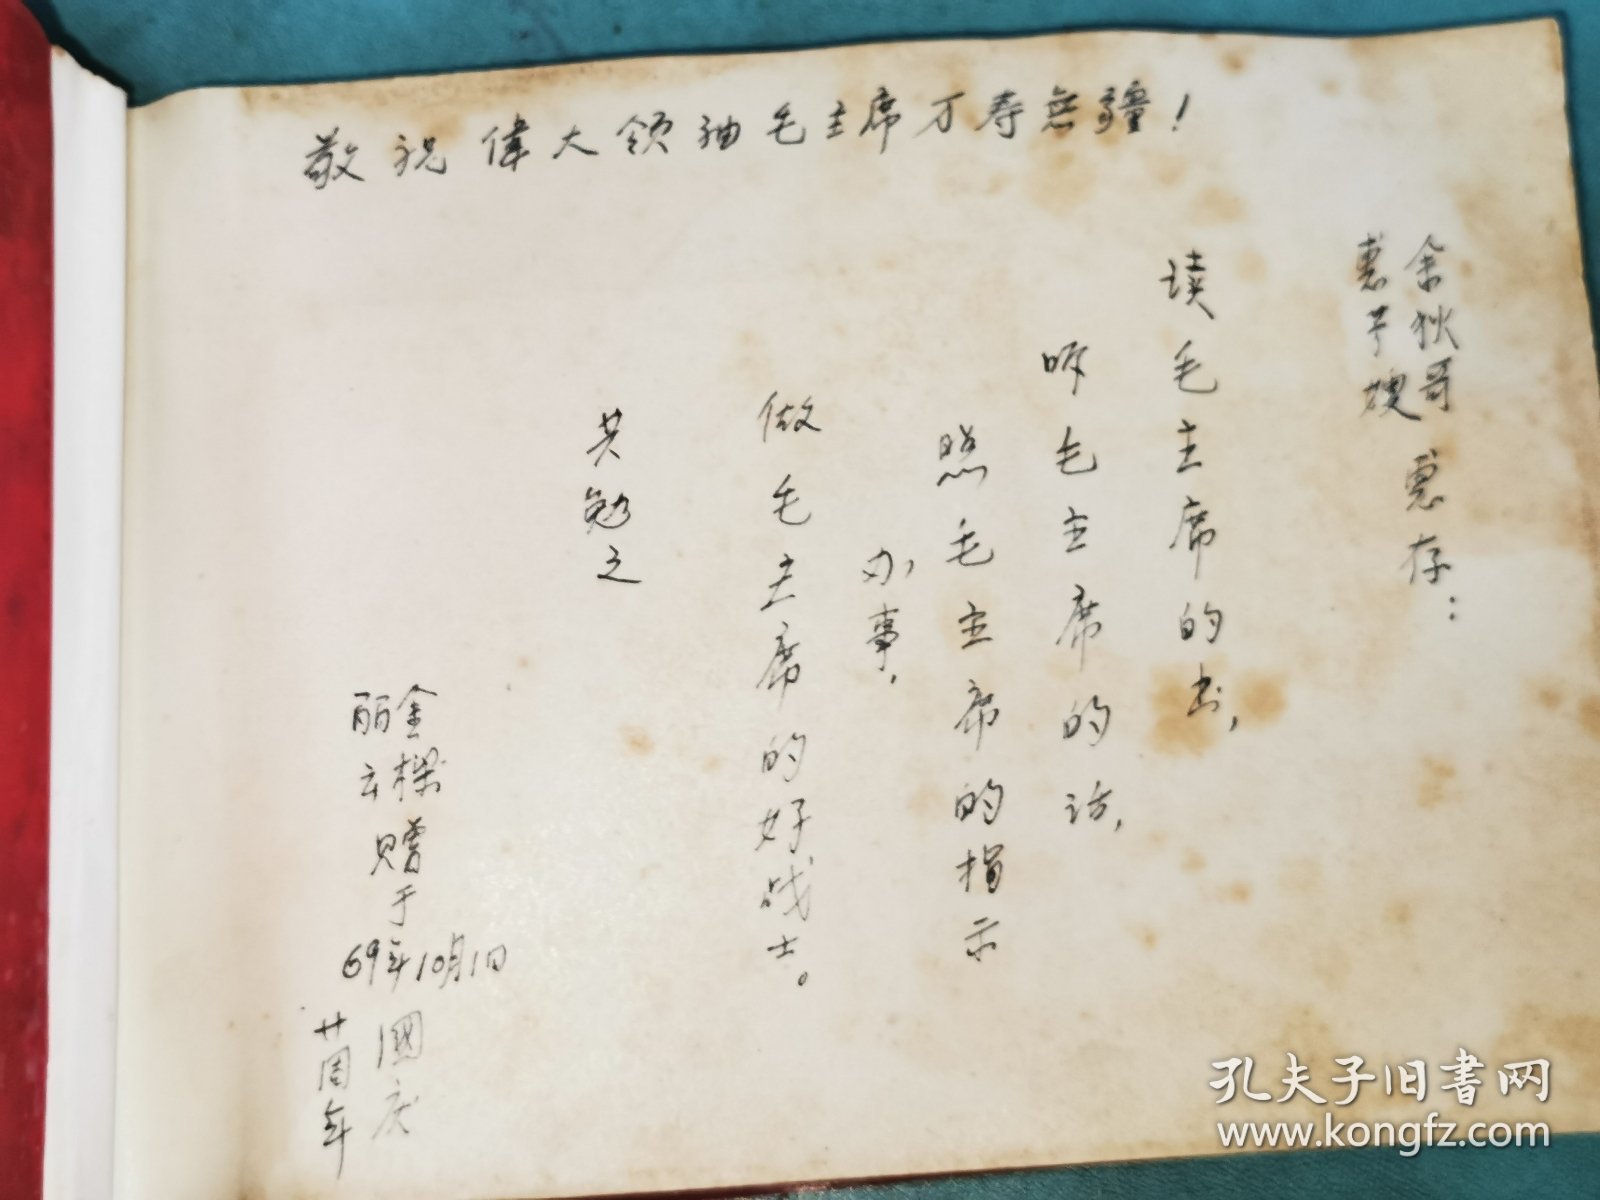 敬祝偉大领袖毛主席万寿無疆！
余狄哥
惠芋嫂 惠存：
读毛主席的书，
听毛主席的话，
照毛主席的指示
办事，
做毛主席的好战士。
共勉之
金樑
丽云 赠于
69年10月1日
國庆
廿周年
孔夫子旧書网
www.kongfz.com